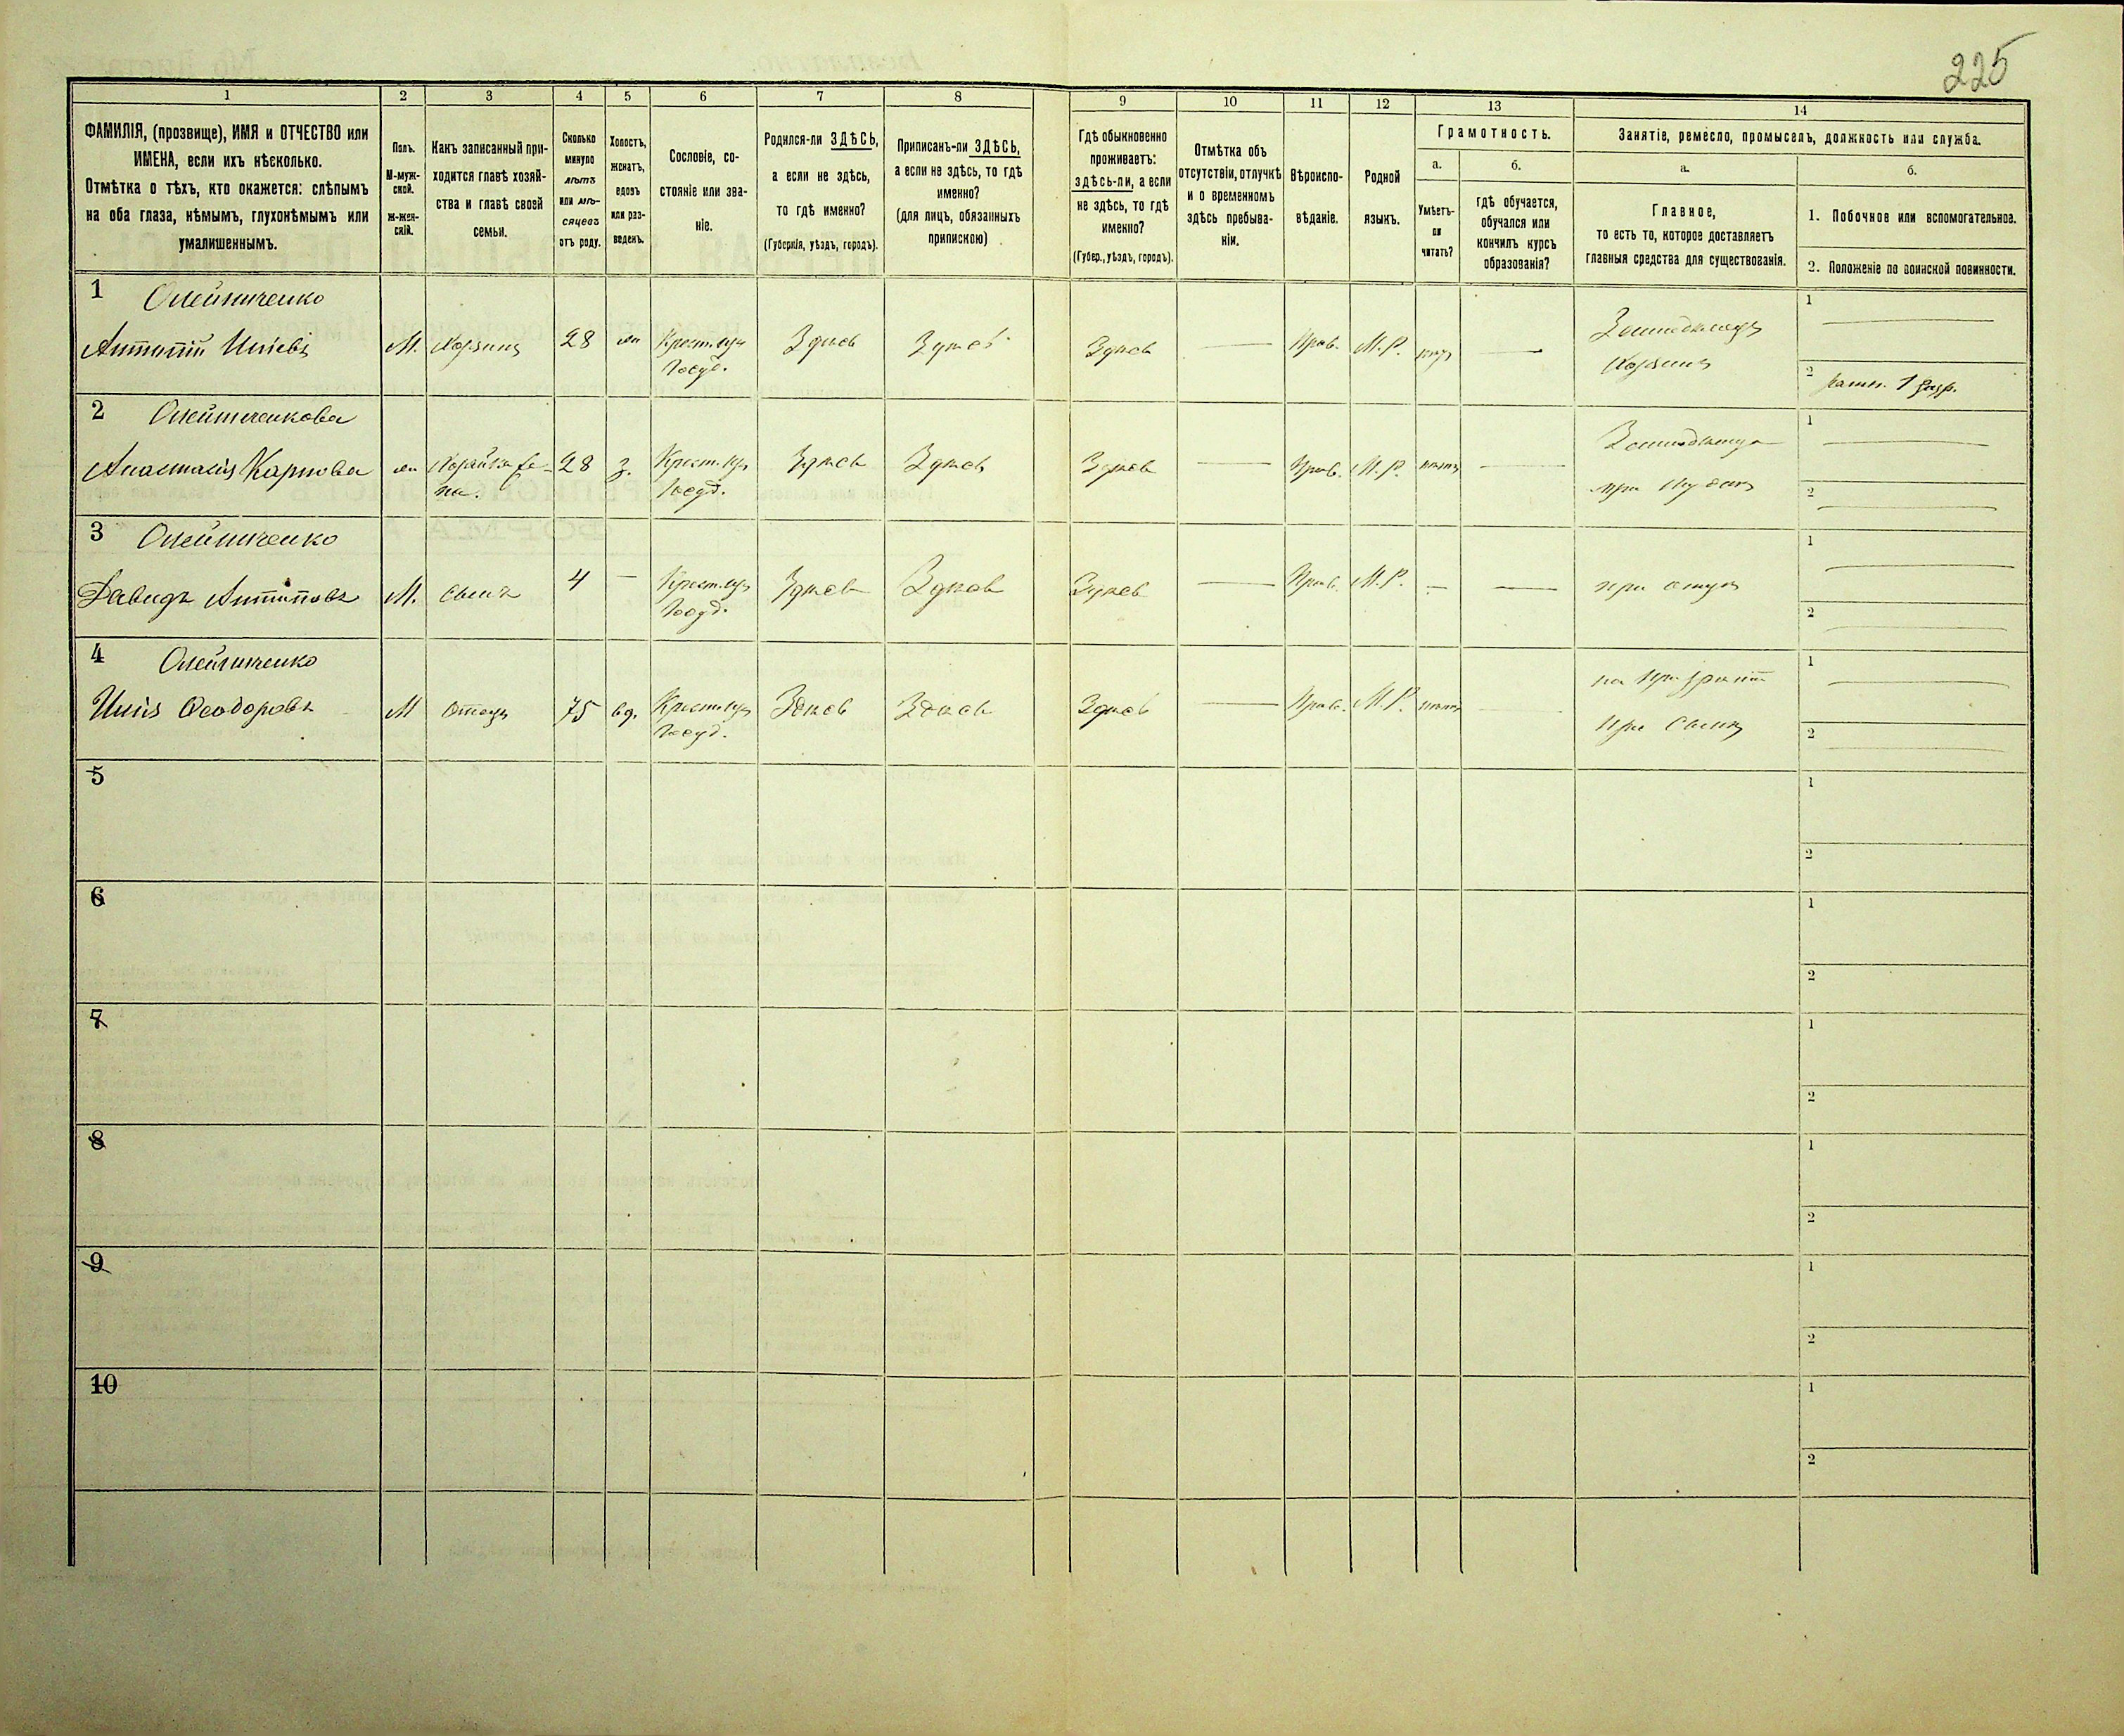 225
1
2
3
4
5
6
7
8
9
10
11
12
13
14
ФАМИЛІЯ, (прозвище), ИМЯ и ОТЧЕСТВО или
ИМЕНА, если ихъ нѣсколько.
Отмѣтка о тѣхъ, кто окажется: слѣпымъ
на оба глаза, нѣмымъ, глухонѣмымъ или
умалишеннымъ.
Полъ.
М-муж-
ской.
Ж-жен-
скій.
Какъ записанный при-
ходится главѣ хозяй-
ства и главѣ своей
семьи.
Сколько
минуло
лѣтъ
или мѣ-
сяцевъ
отъ роду.
Холостъ,
женатъ,
вдовъ
или раз-
веденъ.
Сословіе, со-
стояніе или зва-
ніе.
Родился-ли ЗДѢСЬ,
а если не здѣсь,
то гдѣ именно?
(Губернія, уѣздъ, городъ).
Приписанъ-ли ЗДѢСЬ,
а если не здѣсь, то гдѣ
именно?
(для лицъ, обязанныхъ
припискою)
Гдѣ обыкновенно
проживаетъ:
здѣсь-ли, а если
не здѣсь, то гдѣ
именно?
(Губер., уѣздъ, городъ).
Отмѣтка объ
отсутствіи, отлучкѣ
и о временномъ
здѣсь пребыва-
ніи.
Вѣроиспо-
вѣданіе.
Родной
языкъ.
Грамотность.
а.
Умѣетъ-
ли
читать?
б.
гдѣ обучается,
обучался или
кончилъ курсъ
образованія?
Занятіе, ремесло, промыселъ, должность или служба.
а.
Главное,
то есть то, которое доставляетъ
главныя средства для существованія.
б.
1. Побочное или вспомогательное.
2. Положеніе по воинской повинности.
1 Олейниченко
Антипій Иліевъ
М. Хозяинъ 28 Крест. изъ
Госуд.
Здѣсь Здѣсь Здѣсь — Прав. М. Р. нѣтъ —
Земледѣлецъ
Хозяинъ
1 —
2 ратн. 1 разр.
2 Олейниченкова
Анастасія Карпова
ж Хозяйка же-
на.
28 з. Крест. изъ
Госуд.
Здѣсь Здѣсь Здѣсь — Прав. М. Р. нѣтъ —
при мужѣ
1 —
2 —
3 Олейниченко
Давидъ Антиповъ
М. Сынъ 4 — Крест. изъ
Госуд.
Здѣсь Здѣсь Здѣсь — Прав. М. Р. — —
при отцѣ
1 —
2 —
4 Олейниченко
Илія Ѳеодоровъ
М Отецъ 75 вд. Крест. изъ
Госуд.
Здѣсь Здѣсь Здѣсь — Прав. М. Р. нѣтъ —
на при
при Сынѣ
1 —
2 —
5
1
2
6
1
2
7
1
2
8
1
2
9
1
2
10
1
2